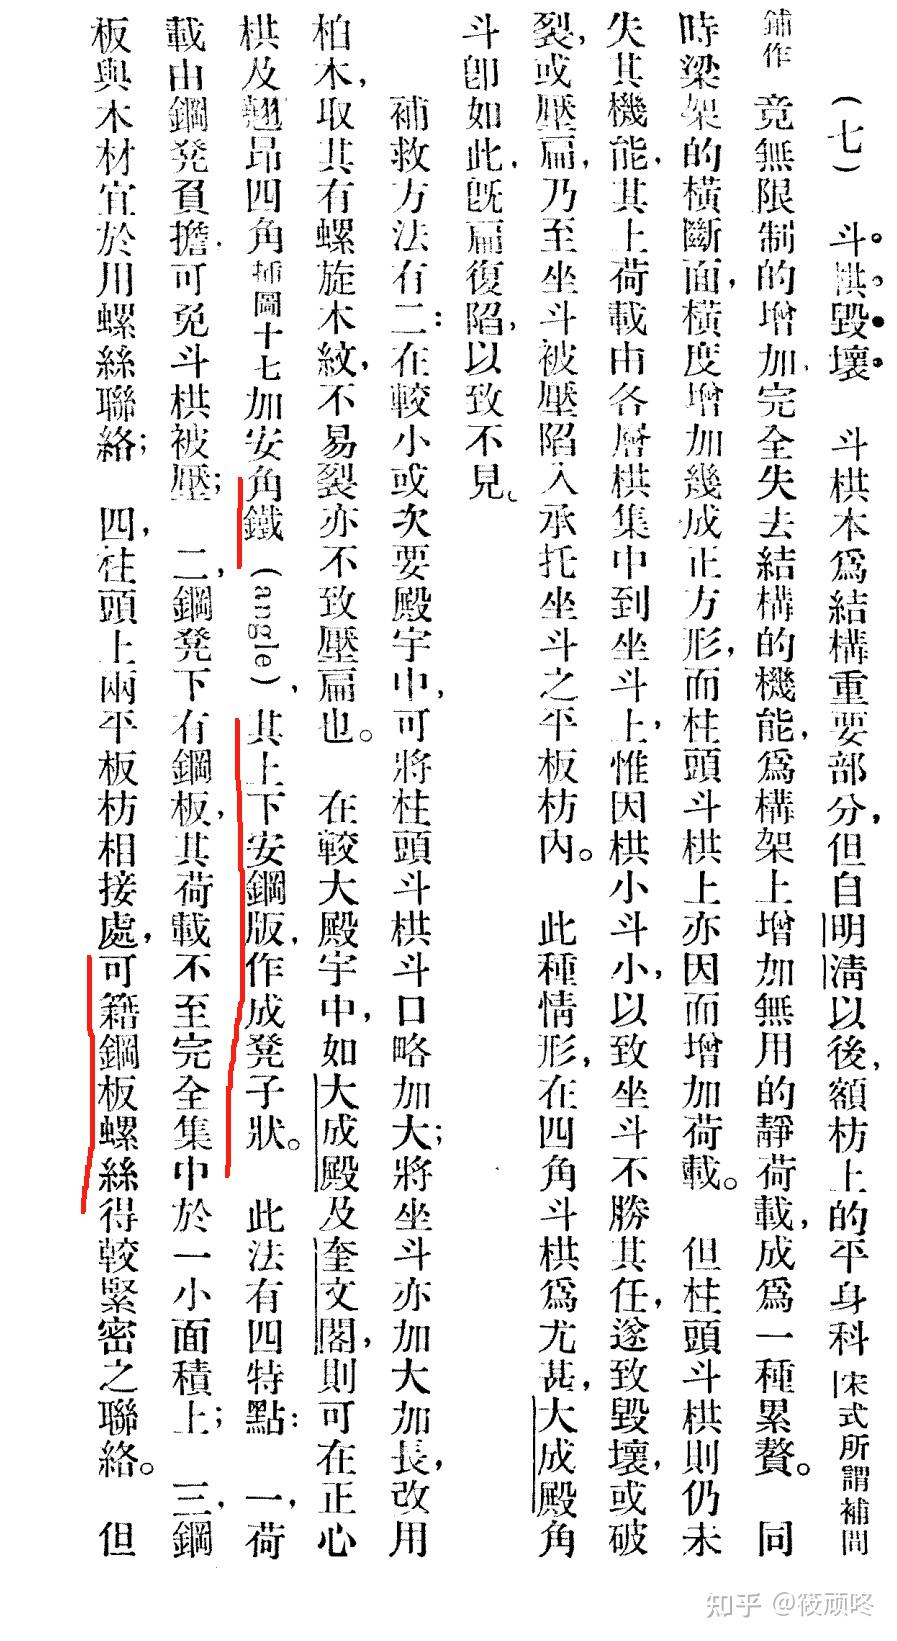 (七) 斗栱毀壞 斗栱本爲結構重要部分,但自明淸以後,額枋上的平身科宋式所謂補間
鋪作 竟無限制的增加完全失去結構的機能,爲構架上增加無用的靜荷載,成爲一種累贅。 同
時梁架的橫斷面,橫度增加幾成正方形,而柱頭斗栱上亦因而增加荷載。 但柱頭斗栱則仍未
失其機能,其上荷載由各層栱集中到坐斗上,惟因栱小斗小,以致坐斗不勝其任,遂致毀壞,或破
裂,或壓扁,乃至坐斗被壓陷入承托坐斗之平板枋內。 此種情形,在四角斗栱爲尤甚,大成殿角
斗卽如此,旣扁復陷,以致不見。
補救方法有二:在較小或次要殿宇中,可將柱頭斗栱斗口略加大;將坐斗亦加大加長,改用
柏木,取其有螺旋木紋,不易裂亦不致壓扁也。 在較大殿宇中,如大成殿及奎文閣,則可在正心
栱及翹昂四角插圖十七加安角鐵(angle),其上下安鋼版,作成凳子狀。 此法有四特點: 一,荷
載由鋼凳負擔,可免斗栱被壓; 二,鋼凳下有鋼板,其荷載不至完全集中於一小面積上; 三,鋼
板與木材宜於用螺絲聯絡; 四,柱頭上兩平板枋相接處,可籍鋼板螺絲得較緊密之聯絡。 但
知乎 @筱顽咚